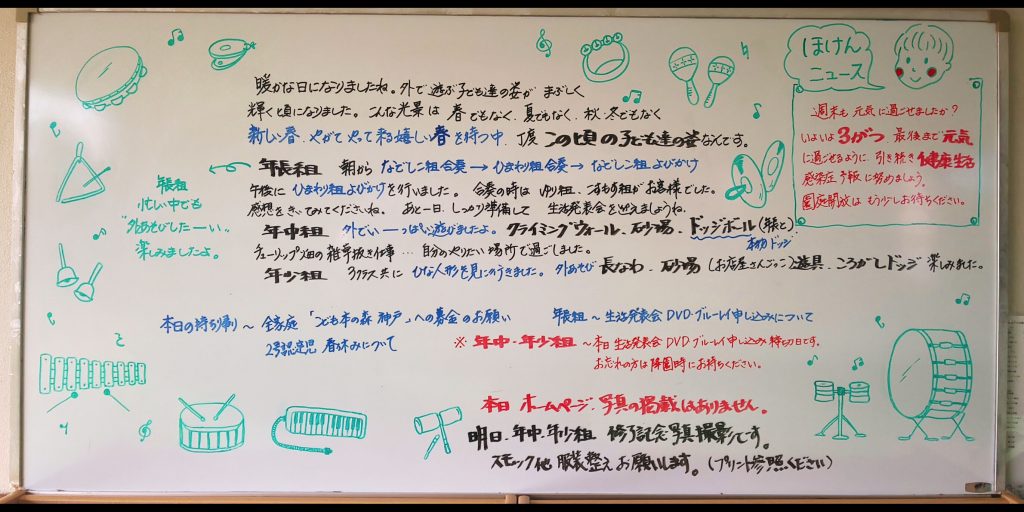 暖かな日になりましたね。外で遊ぶ子ども達の姿が まぶしく
輝く頃になりました。こんな光景は 春でもなく、夏でもなく、秋、冬でもなく
新しい春、やがて やって来る嬉しい春を待つ中、丁度 この頃の子ども達の姿なんです。
年長組 朝から なでしこ組合奏→ひまわり組合奏→なでしこ組よびかけ
午後に ひまわり組よびかけを行いました。合奏の時は ゆり組、こすもす組がお客様でした。
感想をきいてみてくださいね。あと一日、しっかり準備して 生活発表会を迎えましょうね。
年中組 外でいーっぱい遊びましたよ。クライミングウォール、砂場、ドッジボール(年長と)
本力ドッジ
チューリップ畑の雑草抜き仕事…自分のやりたい場所で過ごしました。
年少組 3クラス共に ひな人形を見にゆきました。外あそび 長なわ、砂場(お店屋さんごっこ)遊具、ころがしドッジ 楽しみました。
年長組
忙しい中でも
"外あそびしたーい"
楽しみましたよ。
ほけん
ニュース
週末も 元気に過ごせましたか?
いよいよ 3がつ、最後まで元気
に過ごせるように 引き続き健康生活
感染症予防に努めましょう。
園庭開放は もう少しお待ちください。
本日の持ち帰り〜 全家庭「こども本の森 神戸」への募金のお願い
2号認定児 春休みについて
年長組〜生活発表会DVD・ブルーレイ申し込みについて
※ 年中・年少組〜本日 生活発表会DVDブルーレイ申し込み締め切り日です。
お忘れの方は降園時にお持ちください。
本日 ホームページ、写真の掲載はありません。
明日、年中・年少組 修了記念写真撮影です。
スモック他 服装整え お願いします。(プリント参照ください)